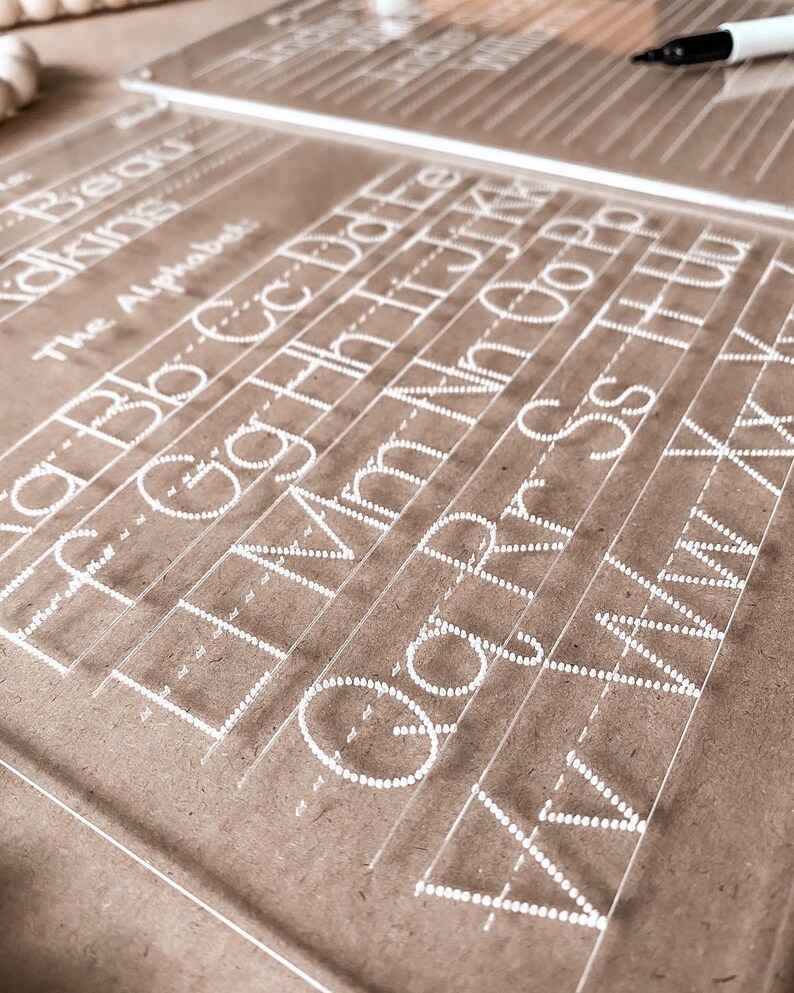 Beau
Adkins
The Alphabet:
Aa Bb Cc Dd Ee
Ff Gg Hh Ii Jj Kk
Ll Mm Nn Oo Pp
Qq Rr Ss Tt Uu
Vv Ww Xx Yy Z